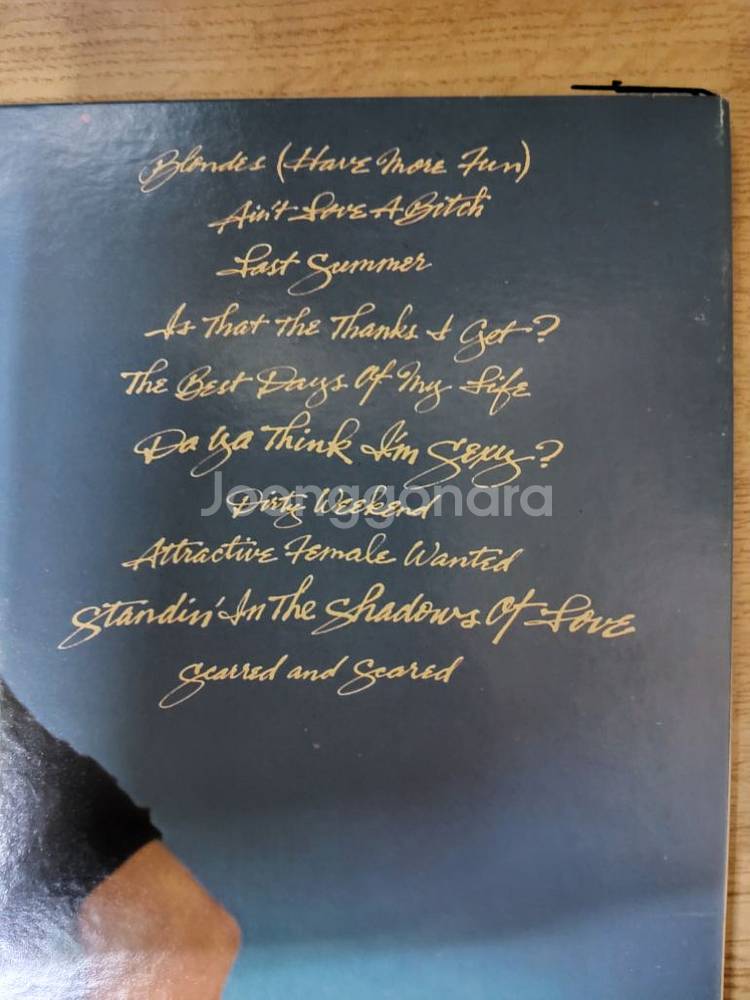 Blondes (Have More Fun)
Ain't Love A Bitch
Last Summer
Is That The Thanks I Get?
The Best Days Of My Life
Da Ya Think I'm Sexy?
Joonggonara
Dirty Weekend
Attractive Female Wanted
Standin' In The Shadows Of Love
Scarred and Scared